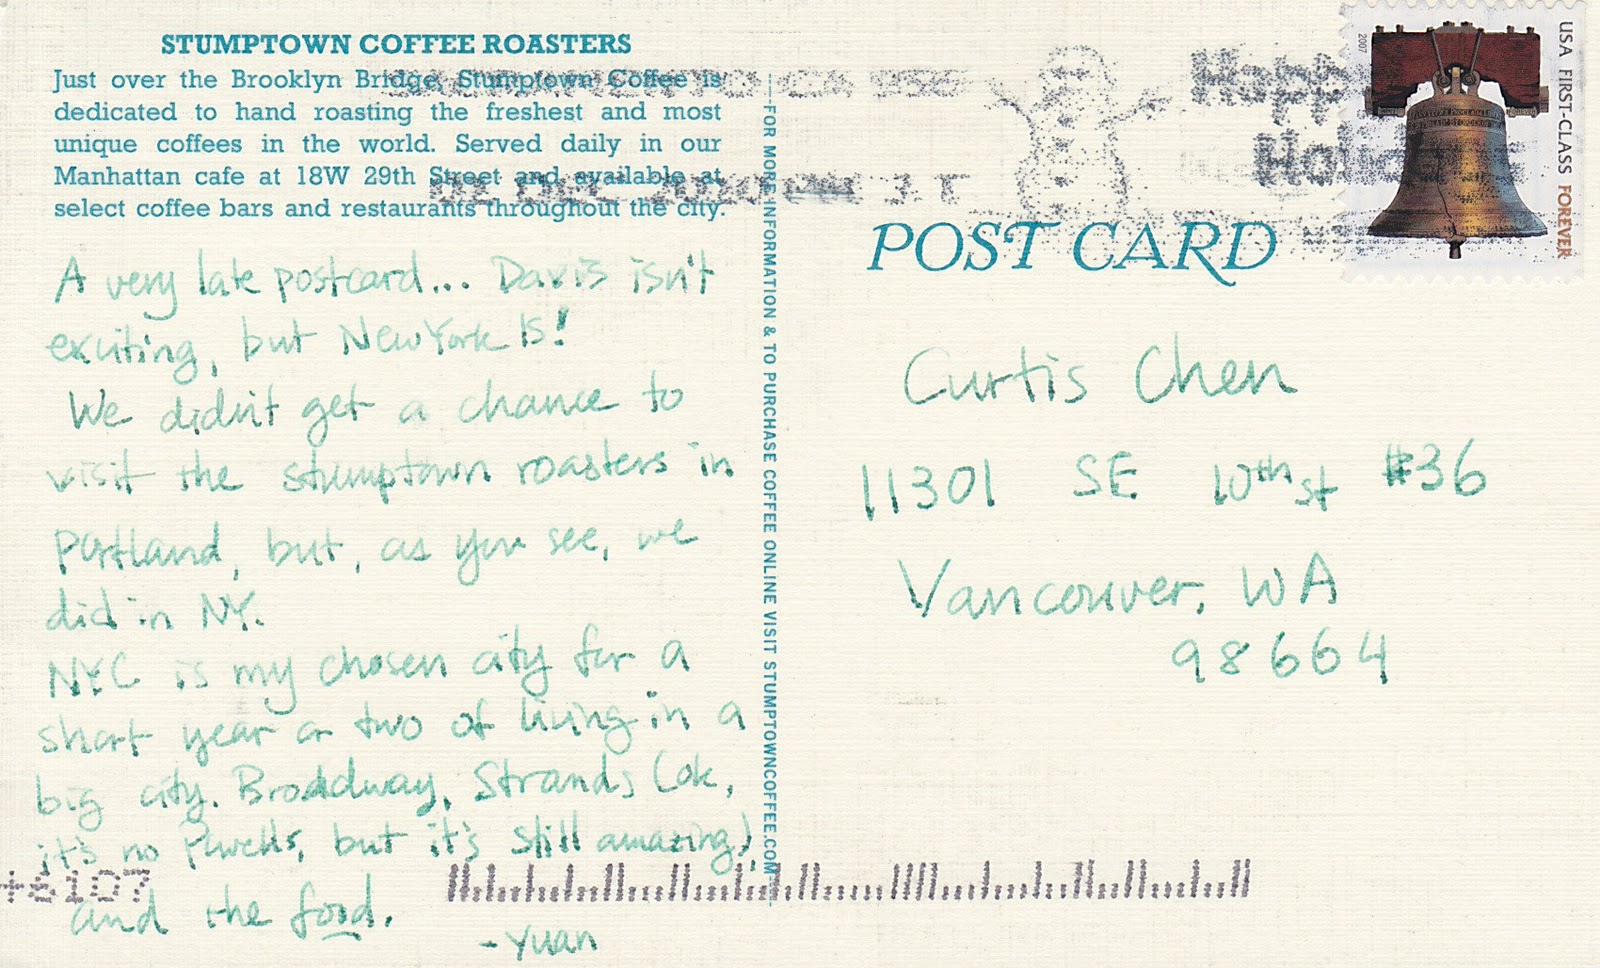 STUMPTOWN COFFEE ROASTERS
Just over the Brooklyn Bridge, Stumptown Coffee is
dedicated to hand roasting the freshest and most
unique coffees in the world. Served daily in our
Manhattan cafe at 18W 29th Street and available at
select coffee bars and restaurants throughout the city.
A very late postcard... Davis isn't
exciting, but New York IS!
We didn't get a chance to
visit the stumptown roasters in
Portland, but, as you see, we
did in NY.
NYC is my chosen city for a
short year or two of living in a
big city. Broadway, Strands (ok,
it's no Powells, but it's still amazing),
and the food.
-Yuan
FOR MORE INFORMATION & TO PURCHASE COFFEE ONLINE VISIT STUMPTOWNCOFFEE.COM
CA 956
Happy
Holidays
2007
USA FIRST-CLASS FOREVER
POST CARD
Curtis Chen
11301 SE 10th st #36
Vancouver, WA
98664